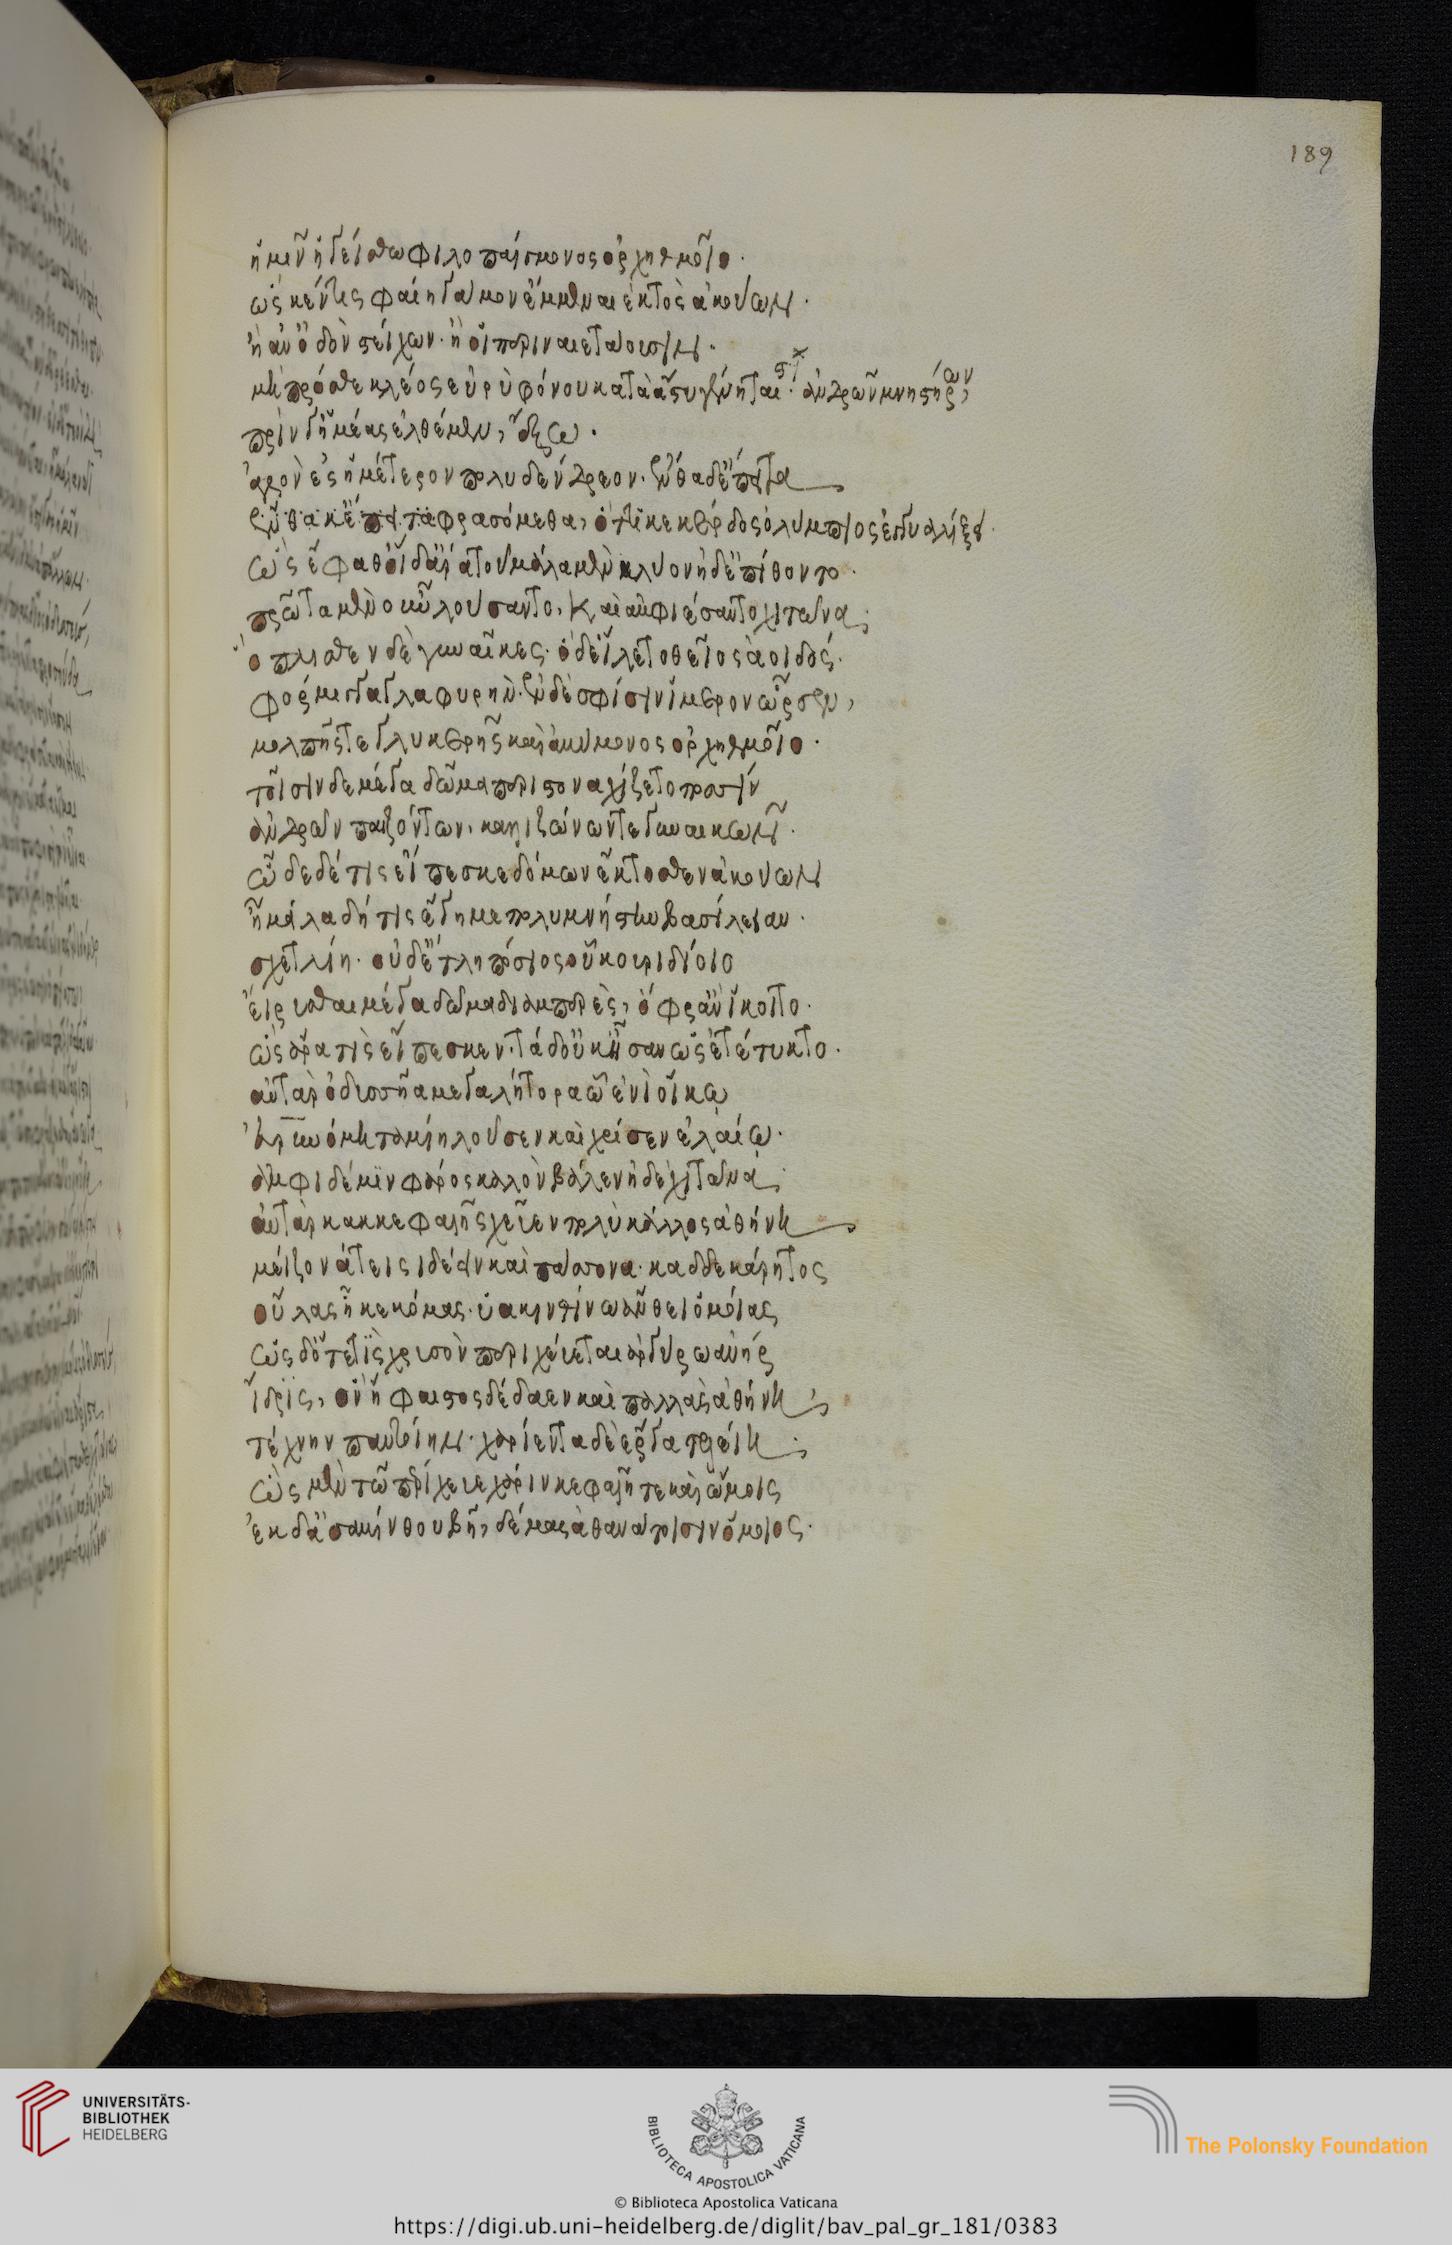 189
ἡμῖν ἡγείσθω φιλοπαίσμονος ὀρχηθμοῖο·
ὥς κέν τις φαίη γάμον ἔμμεναι ἐκτὸς ἀκούων·
ἢ ἀν' ὁδὸν στείχων· ἢ οἳ περιναιετάουσιν·
μὴ πρόσθε κλέος εὐρὺ φόνου κατὰ ἄστυ γένηται· ἀνδρῶν μνηστήρων,
πρίν γ' ἡμέας ἐλθέμεν, ἔξω·
ἀγρὸν ἐς ἡμέτερον πολυδένδρεον· ἔνθα δ' ἔπειτα
ἔνθα κ' ἔπειτα φρασόμεθα, ὅττί κε κέρδος ὀλύμπιος ἐγγυαλίξει·
ὣς ἔφαθ' οἳ δ' ἄρα τοῦ μάλα μὲν κλύον ἠδ' ἐπίθοντο·
πρῶτα μὲν οὖν λούσαντο, καὶ ἀμφιέσαντο χιτῶνας
ὅπλισθεν δὲ γυναῖκες· ὁ δ' εἵλετο θεῖος ἀοιδὸς
φόρμιγγα γλαφυρήν· ἐν δέ σφισιν ἵμερον ὦρσεν,
μολπῆς τε γλυκερῆς καὶ ἀμύμονος ὀρχηθμοῖο·
τοῖσιν δὲ μέγα δῶμα περιστοναχίζετο ποσσὶν
ἀνδρῶν παιζόντων, καλλιζώνων τε γυναικῶν·
ὧδε δέ τις εἴπεσκε δόμων ἔκτοσθεν ἀκούων
ἦ μάλα δή τις ἔγημε πολυμνήστην βασίλειαν·
σχετλίη· οὐδ' ἔτλη πόσιος οὗ κουριδίοιο
εἴρυσθαι μέγα δῶμα διαμπερές, ὄφρ' ἂν ἵκοιτο·
ὣς ἄρα τις εἴπεσκεν· τὰ δ' οὐκ ἴσαν ὡς ἐτέτυκτο·
αὐτὰρ ὀδυσσῆα μεγαλήτορα ᾧ ἐνὶ οἴκῳ
εὐρυνόμη ταμίη λοῦσεν καὶ χρῖσεν ἐλαίῳ·
ἀμφὶ δέ μιν φᾶρος καλὸν βάλεν ἠδὲ χιτῶνα·
αὐτὰρ κακκεφαλῆς χεῦεν πολὺ κάλλος ἀθήνη
μείζονά τ' εἰσιδέειν καὶ πάσσονα· καδδὲ κάρητος
οὔλας ἧκε κόμας· ὑακινθίνῳ ἄνθει ὁμοίας
ὡς δ' ὅτε τὶς χρυσὸν περιχεύεται ἀργύρῳ ἀνὴρ
ἴδρις, ὃν ἥφαιστος δέδαεν καὶ παλλὰς ἀθήνη,
τέχνην παντοίην· χαρίεντα δὲ ἔργα τελείει·
ὣς μὲν τῷ περίχευε χάριν κεφαλῇ τε καὶ ὤμοις
ἐκ δ' ἀσαμίνθου βῆ, δέμας ἀθανάτοισιν ὅμοιος·
UNIVERSITÄTS-
BIBLIOTHEK
HEIDELBERG
BIBLIOTECA APOSTOLICA VATICANA
© Biblioteca Apostolica Vaticana
The Polonsky Foundation
https://digi.ub.uni-heidelberg.de/diglit/bav_pal_gr_181/0383